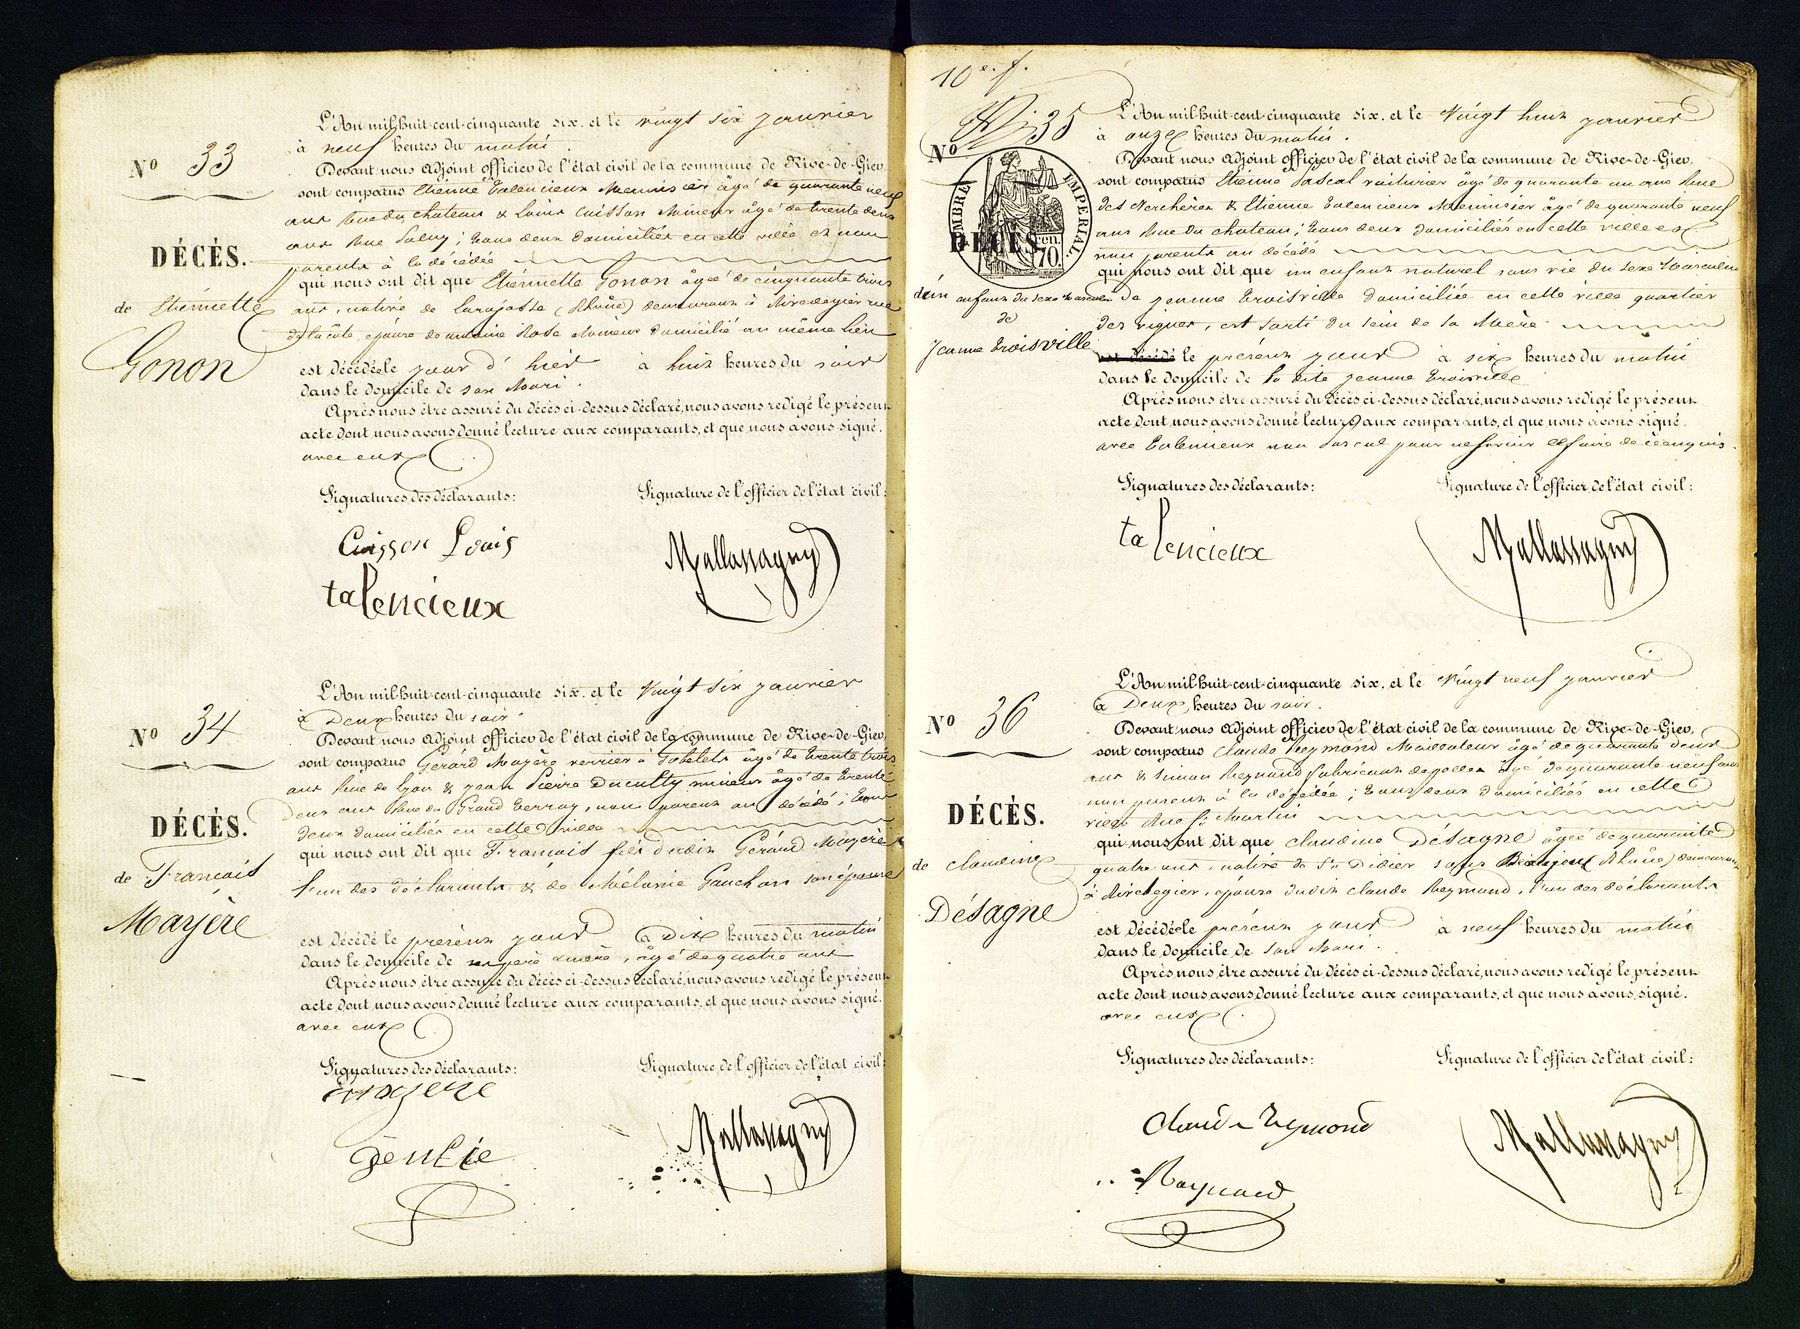 L'An mil huit cent cinquante six, et le vingt six janvier
à neuf heures du matin.
Nº 33
Devant nous Adjoint officier de l'état civil de la commune de Rive-de-Gier,
sont comparus Etienne Talencieux Menuisier âgé de quarante neuf
ans Rue du chateau & Louis Cuisson Mineur âgé de trente deux
ans Rue ; tous deux domiciliés en cette ville et non
DÉCÈS.
parents à la décédée
qui nous ont dit que Etiennette Gonon âgée de cinquante trois
de Etiennette
ans, native de Larajasse (Rhône) demeurant à Rivedegier rue
épouse de Rose Mineur domicilié au même lieu
Gonon
est décédée le jour d'hier à huit heures du soir
dans le domicile de son Mari.
Après nous être assuré du décès ci-dessus déclaré, nous avons redigé le présent
acte dont nous avons donné lecture aux comparants, et que nous avons signé.
avec eux
Signatures des déclarants: Signature de l'officier de l'état civil:
Cuisson Louis
Mallassagny
talencieux
L'An mil huit cent cinquante six, et le Vingt six janvier
à Deux heures du soir.
Nº 34
Devant nous Adjoint officier de l'état civil de la commune de Rive-de-Gier,
sont comparus Gérard Mayère verrier à Gobelets âgé de trente trois
ans Rue de Lyon & jean Pierre mineur âgé de trente
Deux ans Rue du Grand , non parent au décédé ; tous
DÉCÈS.
deux domiciliés en cette ville
qui nous ont dit que Francois fils dudit Gérard Mayère
de Francois
l'un des déclarants & de Mélanie Gauchon son épouse
Mayère
est décédé le présent jour à Dix heures du matin
dans le domicile de ses père & mère, âgé de quatre ans
Après nous être assuré du décès ci-dessus déclaré, nous avons redigé le présent
acte dont nous avons donné lecture aux comparants, et que nous avons signé.
avec eux
Signatures des déclarants: Signature de l'officier de l'état civil:
mayere
Mallassagny
10e. f.
L'An mil huit cent cinquante six, et le Vingt huit janvier
à onze heures du matin.
Nº 35
TIMBRE IMPÉRIAL
70
Devant nous Adjoint officier de l'état civil de la commune de Rive-de-Gier,
sont comparus Etienne Pascal voiturier âgé de quarante un ans Rue
des Verchères & Etienne Talencieux Menuisier âgé de quarante neuf
ans Rue du chateau ; tous deux domiciliés en cette ville et
DÉCÈS
non parents au décédé
qui nous ont dit que un enfant naturel sans vie du sexe Masculin
d'un enfant du sexe Masculin
de jeanne Troisville domiciliée en cette ville quartier
de
des vignes, est sorti du sein de sa Mère
Jeanne Troisville
est décédé le présent jour à six heures du matin
dans le domicile de la dite jeanne Troisville
Après nous être assuré du décès ci-dessus déclaré, nous avons redigé le présent
acte dont nous avons donné lecture aux comparants, et que nous avons signé.
avec Talencieux non Pascal pour ne savoir le faire de ce enquis.
Signatures des déclarants: Signature de l'officier de l'état civil:
talencieux
Mallassagny
L'An mil huit cent cinquante six, et le Vingt neuf janvier
à Deux heures du soir.
Nº 36
Devant nous Adjoint officier de l'état civil de la commune de Rive-de-Gier,
sont comparus Claude Reymond Modeleur âgé de quarante deux
ans & Simon Reynaud fabricant de poeles âgé de quarante neuf ans
non parent à la décédée ; tous deux domiciliés en cette
DÉCÈS.
ville Rue St Martin
qui nous ont dit que Claudine Désagne âgée de quarante
de Claudine
quatre ans, native de St Didier sous Beaujeu (Rhône) demeurant
Désagne
à Rivedegier, épouse dudit Claude Reymond, l'un des déclarants
est décédée le présent jour à neuf heures du matin
dans le domicile de son Mari.
Après nous être assuré du décès ci-dessus déclaré, nous avons redigé le présent
acte dont nous avons donné lecture aux comparants, et que nous avons signé.
avec eux
Signatures des déclarants: Signature de l'officier de l'état civil:
Claude Reymond
Mallassagny
Raynaud